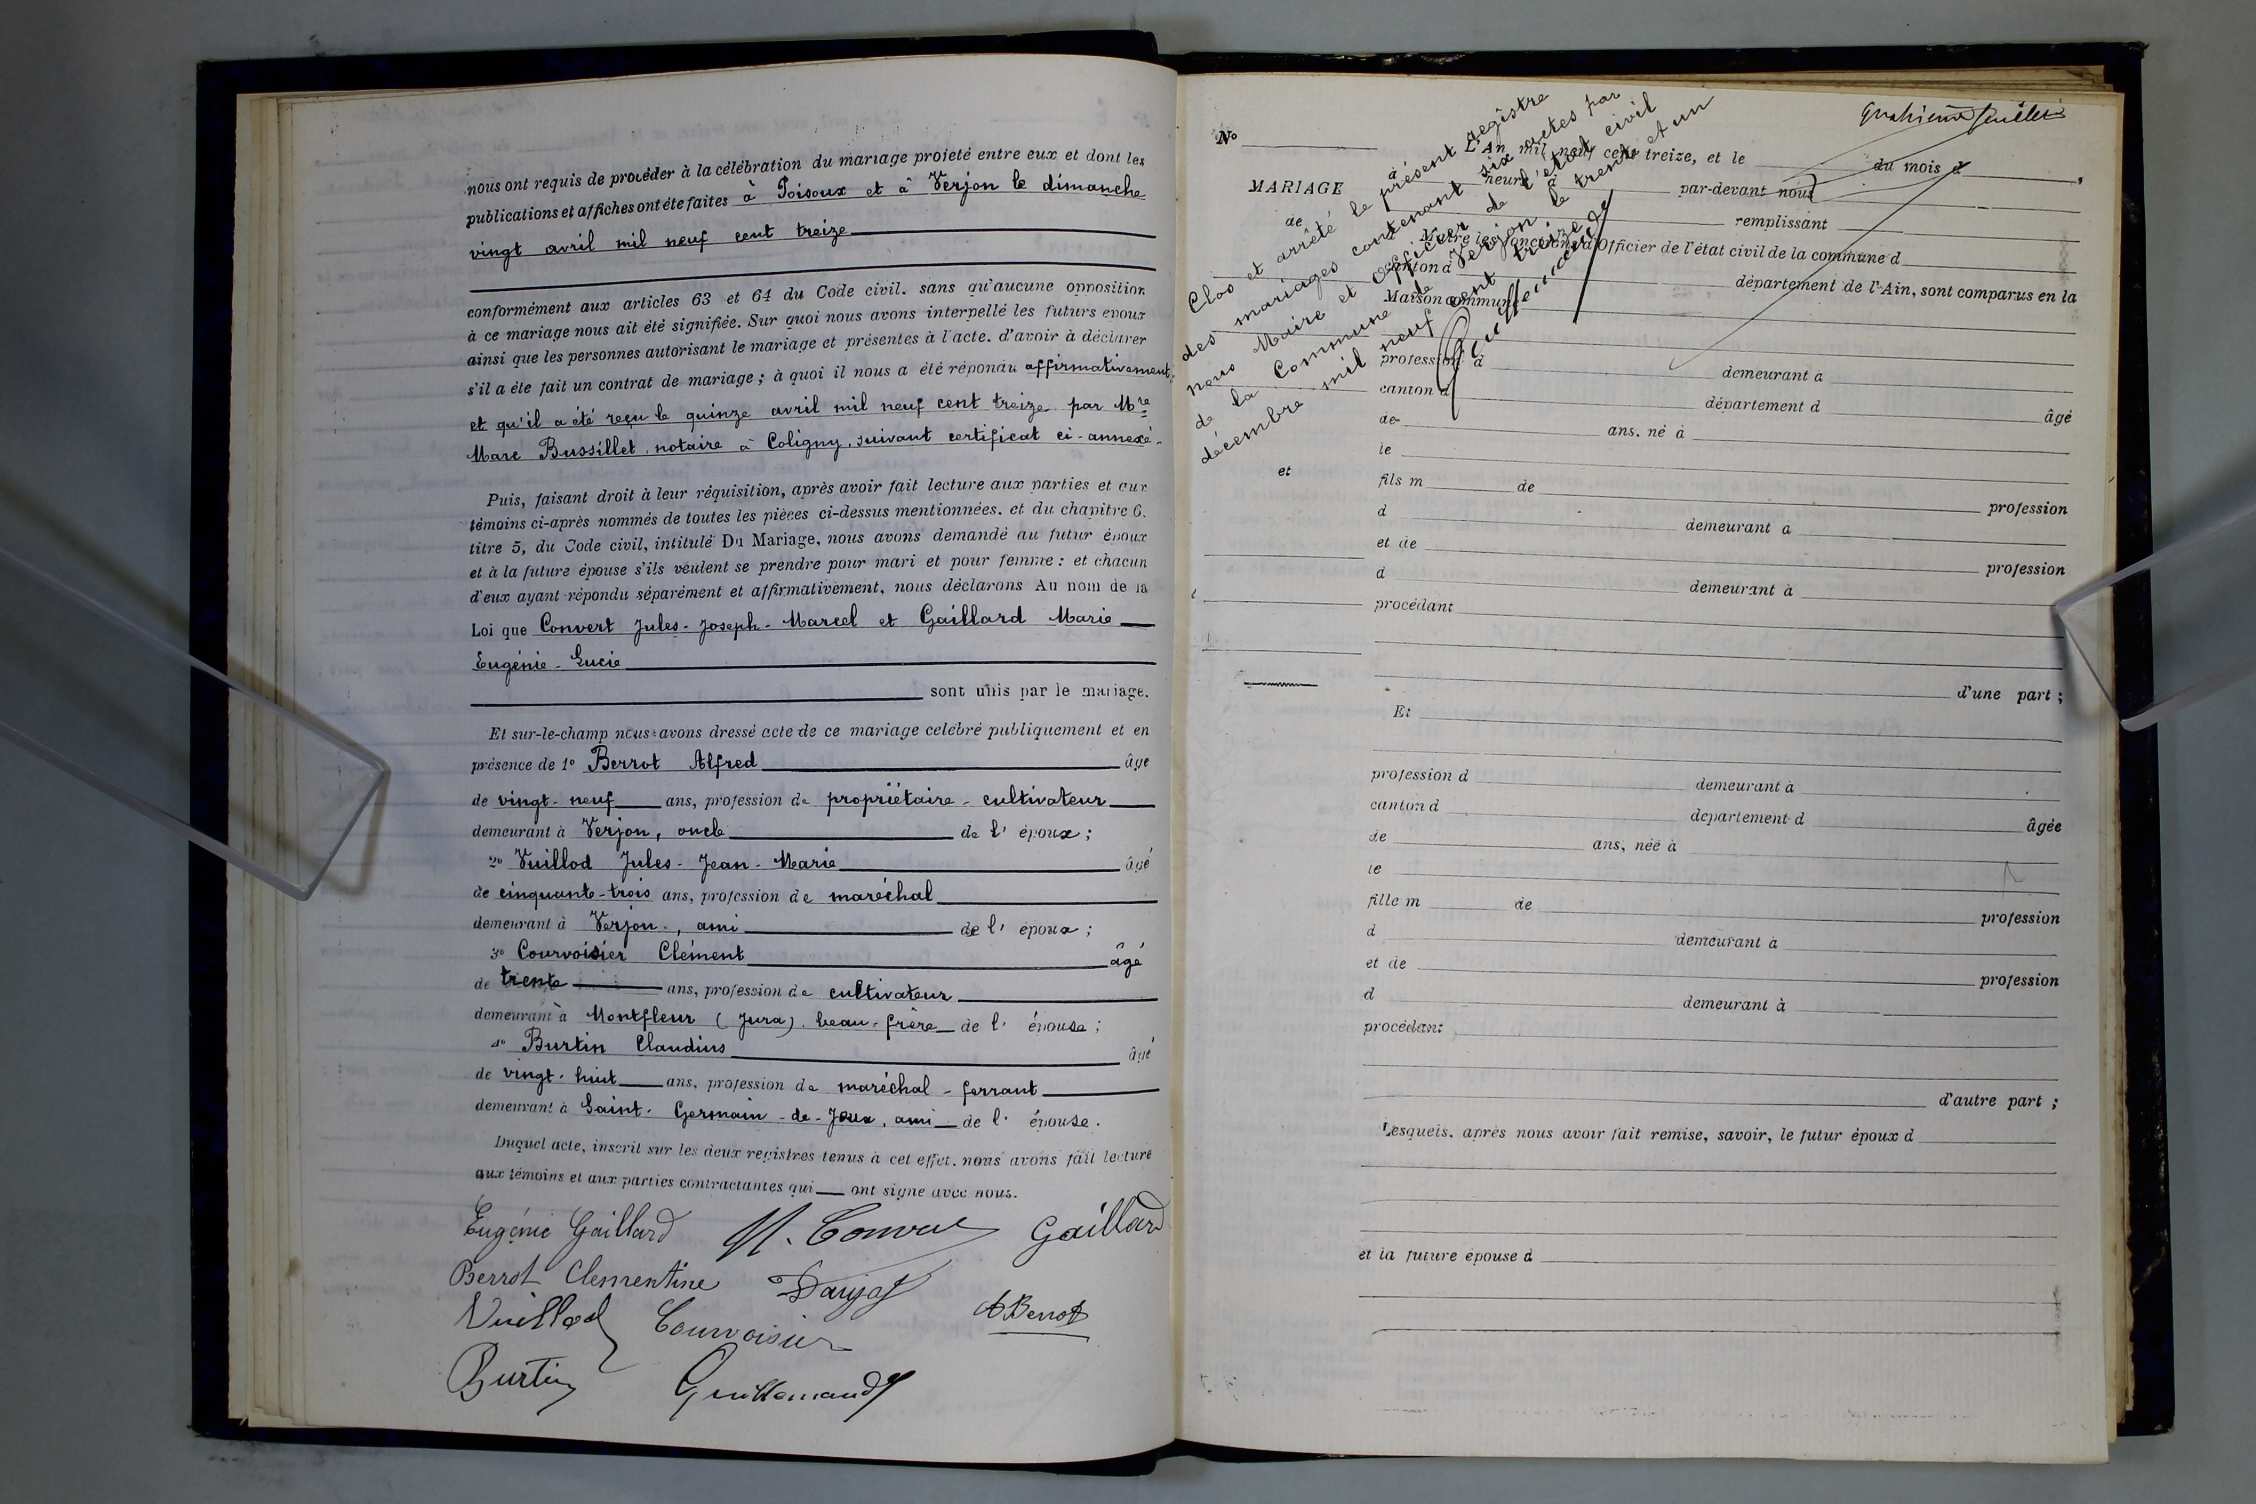 nous ont requis de procéder à la célébration du mariage projeté entre eux et dont les
publications et affiches ont été faites à Poisoux et à Verjon le dimanche
vingt avril mil neuf cent treize
conformément aux articles 63 et 64 du Code civil, sans qu'aucune opposition
à ce mariage nous ait été signifiée. Sur quoi nous avons interpellé les futurs époux
ainsi que les personnes autorisant le mariage et présentes à l'acte, d'avoir à déclarer
s'il a été fait un contrat de mariage ; à quoi il nous a été répondu affirmativement,
et qu'il a été reçu le quinze avril mil neuf cent treize par Mre
Marc Bussillet, notaire à Coligny, suivant certificat ci-annexé.
Puis, faisant droit à leur réquisition, après avoir fait lecture aux parties et aux
témoins ci-après nommés de toutes les pièces ci-dessus mentionnées, et du chapitre 6,
titre 5, du Code civil, intitulé Du Mariage, nous avons demandé au futur époux
et à la future épouse s'ils veulent se prendre pour mari et pour femme : et chacun
d'eux ayant répondu séparément et affirmativement, nous déclarons Au nom de la
Loi que Convert Jules-Joseph-Marcel et Gaillard Marie
Eugénie-Lucie
sont unis par le mariage.
Et sur-le-champ nous avons dressé acte de ce mariage célébré publiquement et en
présence de 1º Berrot Alfred âgé
de vingt-neuf ans, profession de propriétaire-cultivateur
demeurant à Verjon, oncle de l' époux ;
2º Vuillod Jules-Jean-Marie âgé
de cinquante-trois ans, profession de maréchal
demeurant à Verjon, ami de l' époux ;
3º Courvoisier Clément âgé
de trente ans, profession de cultivateur
demeurant à Montfleur (Jura), beau-frère de l' épouse ;
4º Burtin Claudius âgé
de vingt-huit ans, profession de maréchal-ferrant
demeurant à Saint-Germain-de-Joux, ami de l' épouse.
Duquel acte, inscrit sur les deux registres tenus à cet effet, nous avons fait lecture
aux témoins et aux parties contractantes qui ont signé avec nous.
Eugénie Gaillard M. Convert Gaillard
Berrot Clementine
Vuillod Courvoisier A Berrot
Burtin Guillemaud
feuillet
Nº
L'An mil neuf cent treize, et le du mois d
à heure
MARIAGE
par-devant nous
de
remplissant
Maire les fonctions d'Officier de l'état civil de la commune d
canton d département de l'Ain, sont comparus en la
Maison commune
Clos et arrêté le présent registre
des mariages contenant six actes par
nous Maire et Officier de l'état civil
de la Commune de Verjon le trente et un
décembre mil neuf cent treize
Guillemaud
profession d demeurant à
canton d département d âgé
de ans, né à
le
et
fils m de profession
d demeurant à
et de profession
d demeurant à
procédant
d'une part ;
Et
profession d demeurant à
canton d département d âgée
de ans, née à
le
fille m de profession
d demeurant à
et de profession
d demeurant à
procédant
d'autre part ;
Lesquels, après nous avoir fait remise, savoir, le futur époux d
et la future épouse d